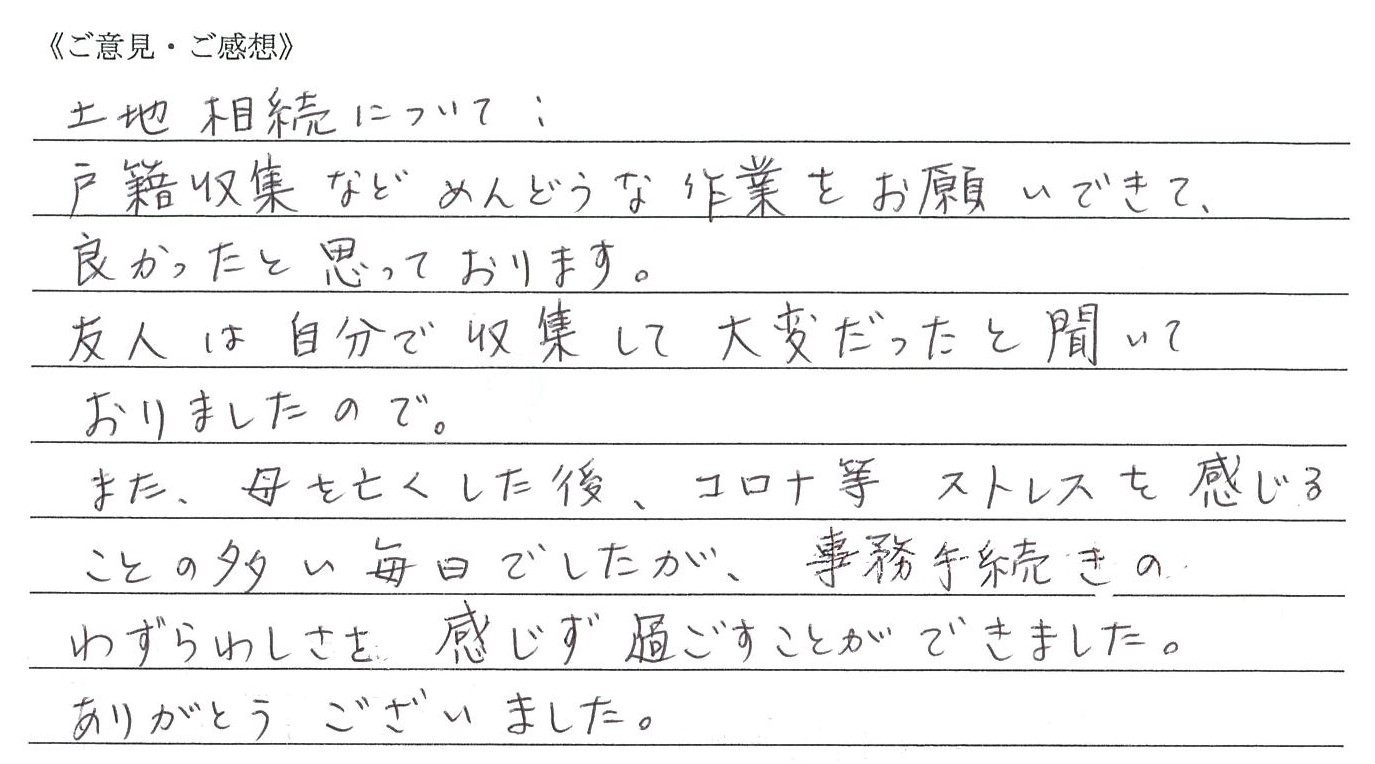 《ご意見・ご感想》
土地相続について：
戸籍収集などめんどうな作業をお願いできて、
良かったと思っております。
友人は自分で収集して大変だったと聞いて
おりましたので。
また、母を亡くした後、コロナ等ストレスを感じる
ことの多い毎日でしたが、事務手続きの
わずらわしさを感じず過ごすことができました。
ありがとうございました。